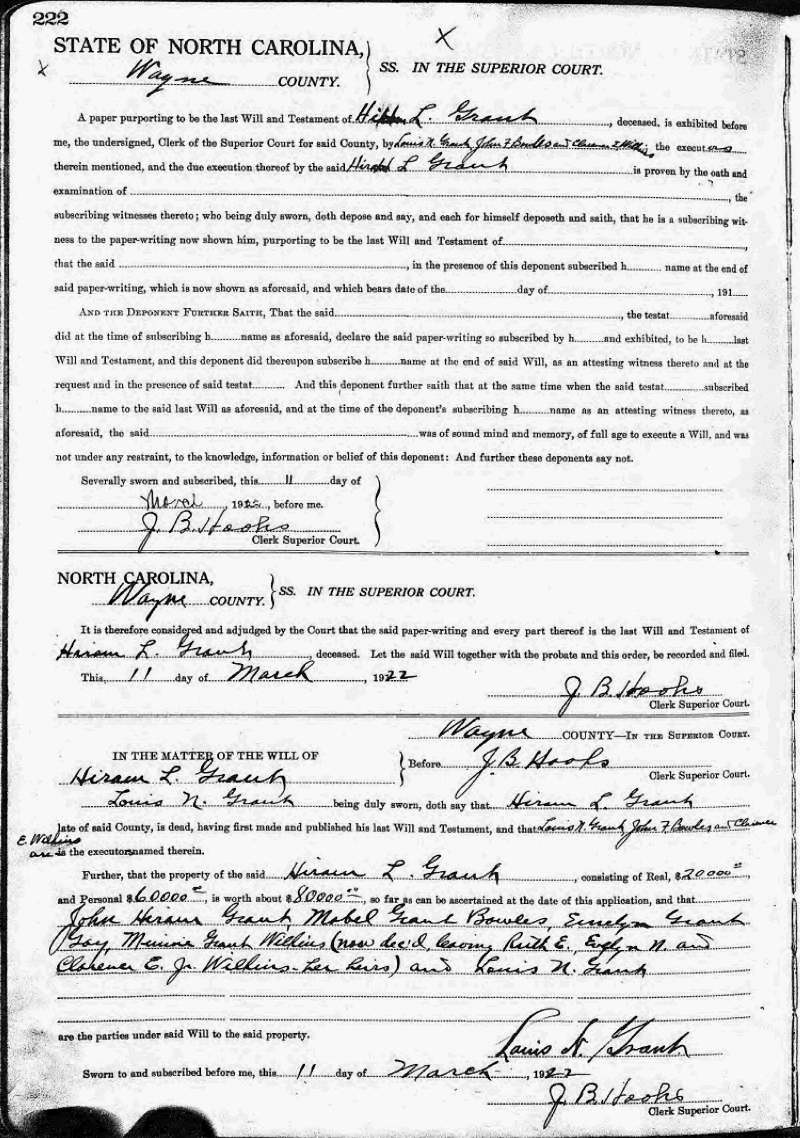 222
STATE OF NORTH CAROLINA,
Wayne COUNTY. SS. IN THE SUPERIOR COURT.
A paper purporting to be the last Will and Testament of Hiram L. Grant, deceased, is exhibited before
me, the undersigned, Clerk of the Superior Court for said County, by Louis N. Grant, John F Bowles and Clarence E. Wilkins, the executors
therein mentioned, and the due execution thereof by the said Hiram L Grant is proven by the oath and
examination of , the
subscribing witnesses thereto; who being duly sworn, doth depose and say, and each for himself deposeth and saith, that he is a subscribing wit-
ness to the paper-writing now shown him, purporting to be the last Will and Testament of ,
that the said , in the presence of this deponent subscribed h name at the end of
said paper-writing, which is now shown as aforesaid, and which bears date of the day of , 191
AND THE DEPONENT FURTHER SAITH, That the said , the testat aforesaid
did at the time of subscribing h name as aforesaid, declare the said paper-writing so subscribed by h and exhibited, to be h last
Will and Testament, and this deponent did thereupon subscribe h name at the end of said Will, as an attesting witness thereto and at the
request and in the presence of said testat . And this deponent further saith that at the same time when the said testat subscribed
h name to the said last Will as aforesaid, and at the time of the deponent's subscribing h name as an attesting witness thereto, as
aforesaid, the said was of sound mind and memory, of full age to execute a Will, and was
not under any restraint, to the knowledge, information or belief of this deponent: And further these deponents say not.
Severally sworn and subscribed, this 11 day of
March, 1922, before me.
J. B. Hooks
Clerk Superior Court.
NORTH CAROLINA,
Wayne COUNTY. SS. IN THE SUPERIOR COURT.
It is therefore considered and adjudged by the Court that the said paper-writing and every part thereof is the last Will and Testament of
Hiram L. Grant, deceased. Let the said Will together with the probate and this order, be recorded and filed.
This, 11 day of March, 1922
J. B. Hooks
Clerk Superior Court.
Wayne COUNTY—IN THE SUPERIOR COURT.
IN THE MATTER OF THE WILL OF
Hiram L. Grant
Before J. B. Hooks
Clerk Superior Court.
Louis N. Grant being duly sworn, doth say that Hiram L. Grant
late of said County, is dead, having first made and published his last Will and Testament, and that Louis N. Grant, John F Bowles and Clarence
E. Wilkins
are is the executors named therein.
Further, that the property of the said Hiram L. Grant, consisting of Real, $20000.00,
and Personal $60000.00, is worth about $80000.00, so far as can be ascertained at the date of this application, and that
John Hiram Grant, Mabel Grant Bowles, Emelyn Grant
Gay, Minnie Grant Wilkins (now dec'd, leaving Ruth E., Evelyn N. and
Clarence E. Jr. Wilkins - her heirs) and Louis N. Grant
are the parties under said Will to the said property.
Louis N. Grant
Sworn to and subscribed before me, this 11 day of March, 1922
J. B. Hooks
Clerk Superior Court.